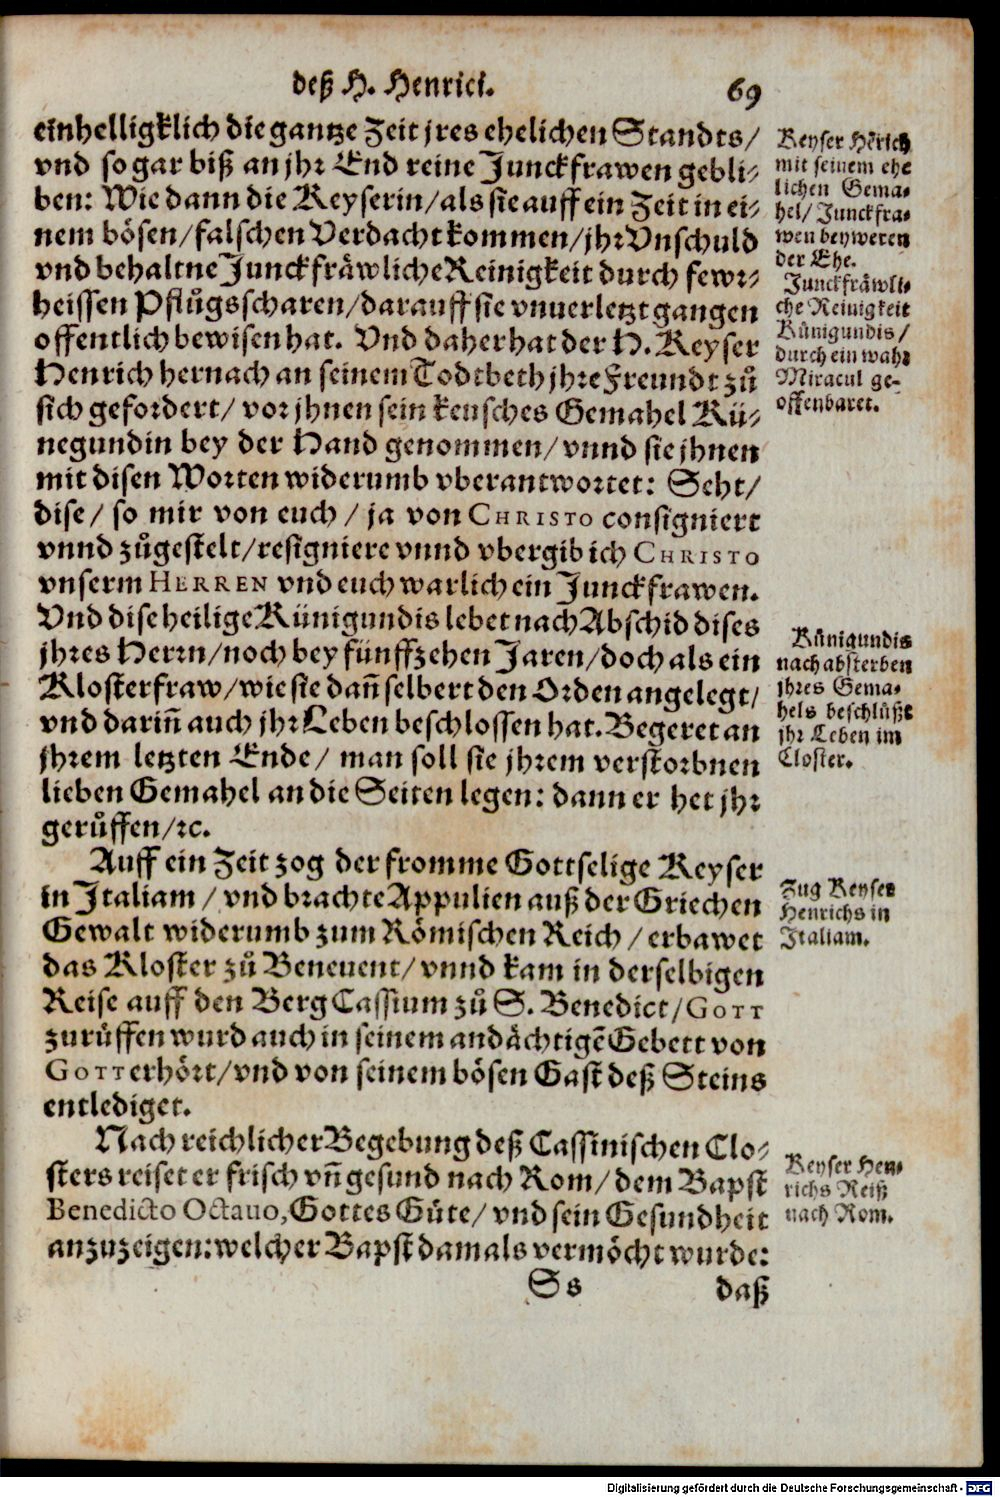 deß H. Henrici.
69
einhelligklich die gantze Zeit jres ehelichen Standts/
vnd so gar biß an jhr End reine Junckfrawen gebli-
ben: Wie dann die Keyserin/ als sie auff ein Zeit in ei-
nem bösen/ falschen Verdacht kommen/ jhr Vnschuld
vnd behaltne Junckfräwliche Reinigkeit durch fewr-
heissen Pflůgsscharen/ darauff sie vnuerletzt gangen
offentlich bewisen hat. Vnd daher hat der H. Keyser
Henrich hernach an seinem Todtbeth jhre Freundt zů
sich gefordert/ vor jhnen sein keusches Gemahel Kü-
negundin bey der Hand genommen/ vnnd sie jhnen
mit disen Worten widerumb vberantwortet: Seht/
dise/ so mir von euch/ ja von CHRISTO consigniert
vnnd zůgestelt/ resigniere vnnd vbergib ich CHRISTO
vnserm HERREN vnd euch warlich ein Junckfrawen.
Vnd dise heilige Künigundis lebet nach Abschid dises
jhres Herrn/ noch bey fünffzehen Jaren/ doch als ein
Klosterfraw/ wie sie dañ selbert den Orden angelegt/
vnd dariñ auch jhr Leben beschlossen hat. Begeret an
jhrem letzten Ende/ man soll sie jhrem verstorbnen
lieben Gemahel an die Seiten legen: dann er het jhr
gerůffen/ ꝛc.
Auff ein Zeit zog der fromme Gottselige Keyser
in Italiam/ vnd brachte Appulien auß der Griechen
Gewalt widerumb zum Römischen Reich/ erbawet
das Kloster zů Beneuent/ vnnd kam in derselbigen
Reise auff den Berg Cassium zů S. Benedict/ GOTT
zurůffen wurd auch in seinem andächtigẽ Gebett von
GOTT erhört/ vnd von seinem bösen Gast deß Steins
entlediget.
Nach reichlicher Begebung deß Cassinischen Clo-
sters reiset er frisch vñ gesund nach Rom/ dem Bapst
Benedicto Octauo, Gottes Güte/ vnd sein Gesundheit
anzuzeigen: welcher Bapst damals vermöcht wurde:
Ss
daß
Keyser Hẽrich
mit seinem ehe
lichen Gema-
hel/ Junckfra-
wen beyweren
der Ehe.
Junckfräwli-
che Reinigkeit
Künigundis/
durch ein wahr
Miracul ge-
offenbaret.
Künigundis
nach absterben
jhres Gema-
hels beschlüßt
jhr Leben im
Closter.
Zug Keyser
Henrichs in
Italiam.
Keyser Hen-
richs Reiß
nach Rom.
Digitalisierung gefördert durch die Deutsche Forschungsgemeinschaft - DFG